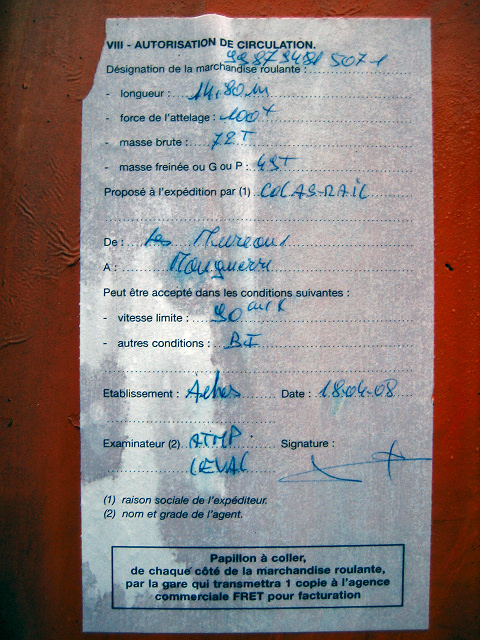 VIII - AUTORISATION DE CIRCULATION.
Désignation de la marchandise roulante : 99873481 507-1
- longueur : 14,80 m
- force de l'attelage : 100T
- masse brute : 72T
- masse freinée ou G ou P : 43T
Proposé à l'expédition par (1) COLAS-RAIL
De : Les Mureaux
A : Mouguerre
Peut être accepté dans les conditions suivantes :
- vitesse limite : 90
- autres conditions : BI
Etablissement : Achères Date : 18-04-08
Examinateur (2) ATMP Signature :
LEVAL
(1) raison sociale de l'expéditeur.
(2) nom et grade de l'agent.
Papillon à coller,
de chaque côté de la marchandise roulante,
par la gare qui transmettra 1 copie à l'agence
commerciale FRET pour facturation